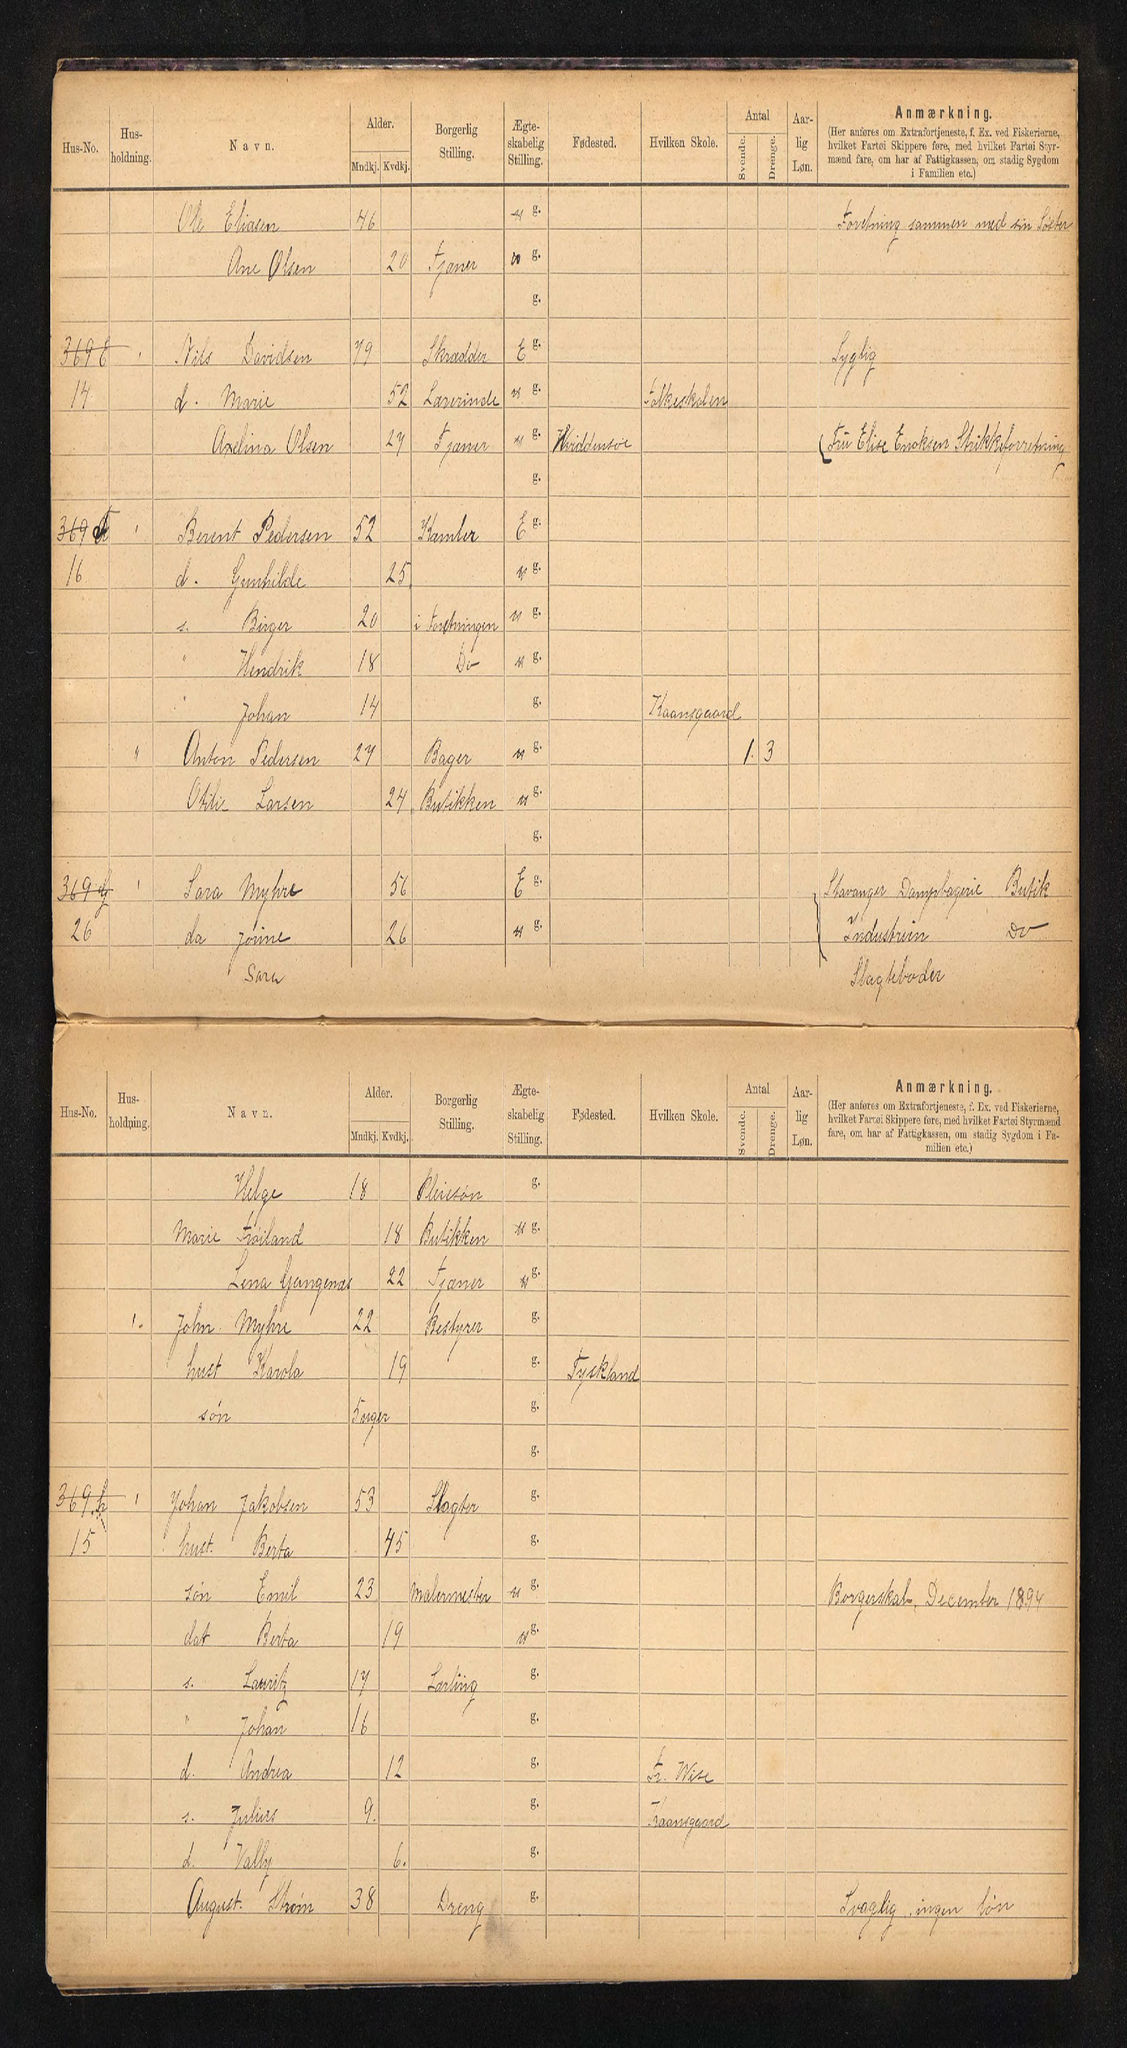 Hus-No. Hus-holdning. Navn. Alder. Mndkj. Kvdkj. Borgerlig Stilling. Ægte-skabelig Stilling. Fødested. Hvilken Skole. Antal Svende. Drenge. Aar-lig Løn. Anmærkning.
(Her anføres om Extrafortjeneste, f. Ex. ved Fiskerierne, hvilket Fartøi Skippere føre, med hvilket Fartøi Styr-mænd fare, om har af Fattigkassen, om stadig Sygdom i Familien etc.)
Ole Eliasen 46 u g. Foretning sammen med sin Søster
Ane Olsen 20 Tjener u g.
g.
369 e " Nils Davidsen 79 Skrædder E g. Syglig
14 d. Marie 52 Lærerinde u g. Folkeskolen
Axelina Olsen 27 Tjener u g. Hviddensøe Frü Elise Enoksen Strikkeforretning
g.
369 f " Berent Pedersen 52 Hamler E g.
16 d. Gunhilde 25 u g.
s. Birger 20 i Foretningen u g.
" Hendrik 18 Do u g.
" Johan 14 g. Kaansgaard
" Anton Pedersen 27 Bager u g. 1. 3
Otilie Larsen 24 Butikken u g.
g.
369 g " Sara Myhre 56 E g. Stavanger Dampbageri Butik
26 da Jörine 26 u g. Industrien Do
Sara Slagteboder
Hus-No. Hus-holdning. Navn. Alder. Mndkj. Kvdkj. Borgerlig Stilling. Ægte-skabelig Stilling. Fødested. Hvilken Skole. Antal Svende. Drenge. Aar-lig Løn. Anmærkning.
(Her anføres om Extrafortjeneste, f. Ex. ved Fiskerierne, hvilket Fartøi Skippere føre, med hvilket Fartøi Styrmænd fare, om har af Fattigkassen, om stadig Sygdom i Fa-milien etc.)
Helge 18 Pleiesøn g.
Marie Frøiland 18 Butikken u g.
Lena Gjengenæs 22 Tjener u g.
1. John Myhre 22 Bestyrer g.
hust Karola 19 g. Tyskland
søn 5 uger g.
g.
369 h " Johan Jakobsen 53 Slagter g.
15 hust. Berta 45 g.
søn Emil 23 Malermester u g. Borgerskab, December 1894
dat Berta 19 u g.
s. Lauritz 17 Lærling g.
" Johan 16 g.
d. Andrea 12 g. Fr. Wise
s. Julius 9. g. Kaansgaard
d. Vally 6. g.
August. Strøm 38 Dreng g. Svaglig, ingen løn